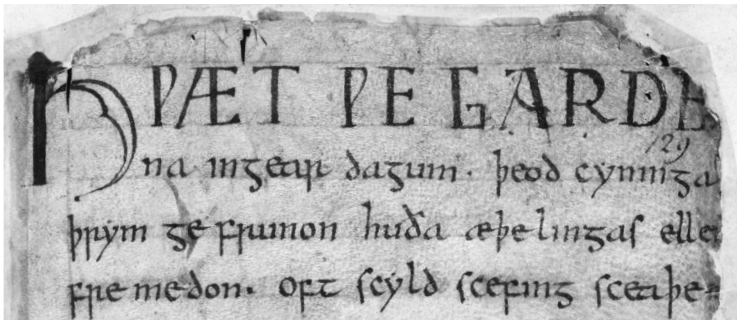 HǷÆT ǷE GARDE
na ingear dagum. þeod cyninga
þrym ge frunon huða æþelingas elle
fremedon. oft scyld scefing sceaþe
129